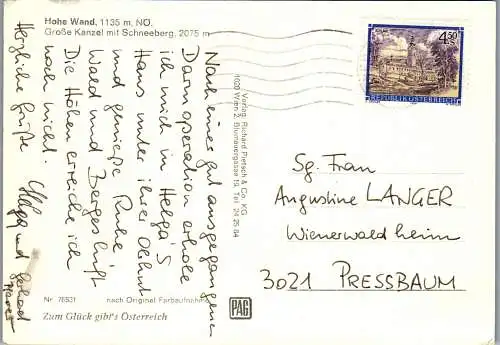 Hohe Wand, 1135 m, NÖ.
Große Kanzel mit Schneeberg, 2075 m
Nach einer gut ausgegangenen
Darmoperation erhole
ich mich in Helga's
Haus unter ihrer Obhut
und genieße Ruhe
Wald und Bergesluft
Die Höhen erreiche ich
noch nicht.
Herzliche Grüße
Helga und
Verlag: Richard Pietsch & Co. KG
1020 Wien 2, Blumauergasse 19, Tel. 24 25 84
4.50
S
REPUBLIK ÖSTERREICH
Sg. Frau
Augustine LANGER
Wienerwaldheim
3021 PRESSBAUM
Nr. 76531
nach Original Farbaufnahme
PAG
Zum Glück gibt's Österreich